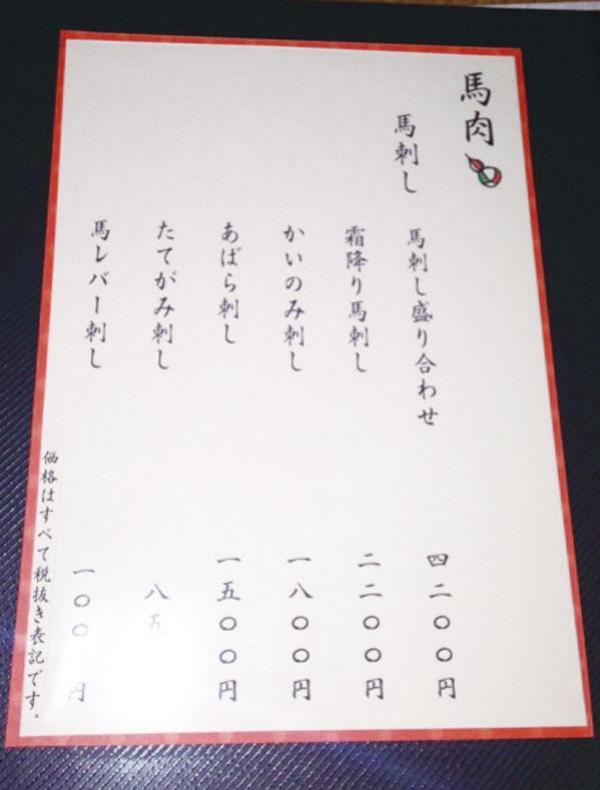 馬肉
馬刺し
馬刺し盛り合わせ 四二〇〇円
霜降り馬刺し 二二〇〇円
かいのみ刺し 一八〇〇円
あばら刺し 一五〇〇円
たてがみ刺し 八五
馬レバー刺し 一〇〇 円
価格はすべて税抜き表記です。